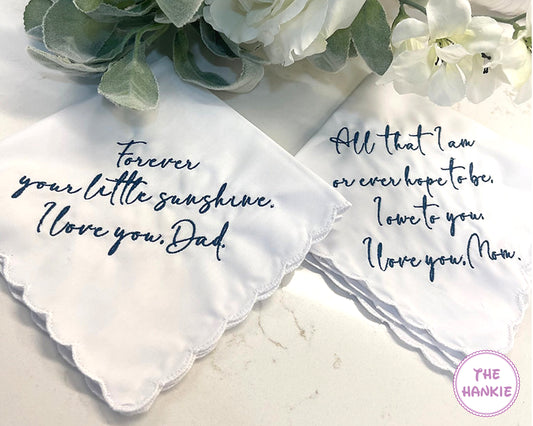 Forever
your little sunshine.
I love you, Dad.
All that I am
or ever hope to be,
I owe to you.
I love you, Mom.
THE
HANKIE